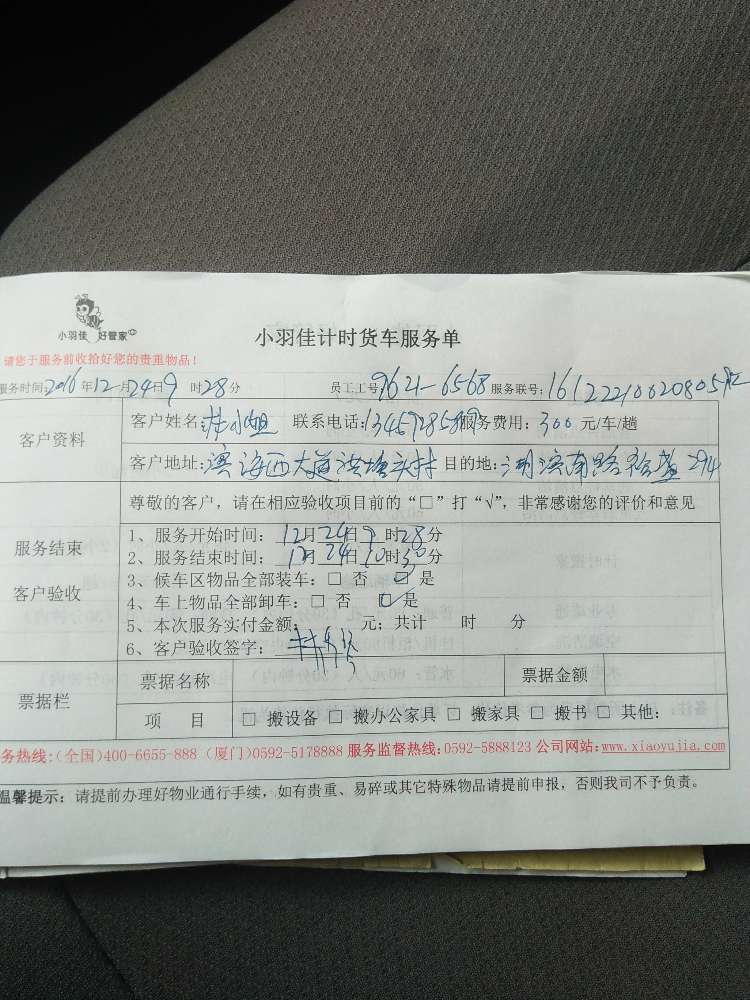 小羽佳 好管家
小羽佳计时货车服务单
请您于服务前收拾好您的贵重物品！
服务时间：2016年12月24日9时28分 员工工号：9621-6568 服务联号：
客户资料
客户姓名：林小姐 联系电话： 服务费用：300元/车/趟
客户地址：滨海西大道洪塘头村 目的地：湖滨南路
尊敬的客户，请在相应验收项目前的“□”打“√”，非常感谢您的评价和意见
服务结束
客户验收
1、服务开始时间：12月24日9时28分
2、服务结束时间：12月24日10时30分
3、候车区物品全部装车：□ 否 ☑ 是
4、车上物品全部卸车：□ 否 ☑ 是
5、本次服务实付金额： 元；共计 时 分
6、客户验收签字：
票据栏
票据名称 票据金额
项 目 □ 搬设备 □ 搬办公家具 □ 搬家具 □ 搬书 □ 其他：
务热线：(全国)400-6655-888 (厦门)0592-5178888 服务监督热线：0592-5888123 公司网站：www.xiaoyujia.com
温馨提示：请提前办理好物业通行手续，如有贵重、易碎或其它特殊物品请提前申报，否则我司不予负责。